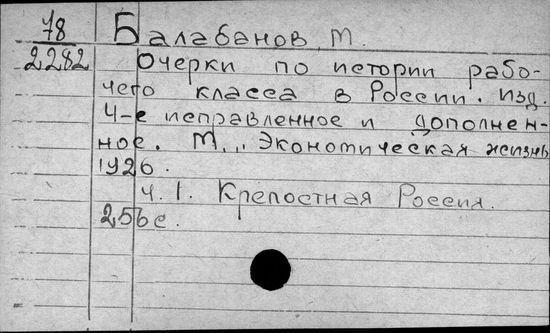 78 Балабанов М.
2282 Очерки по истории рабо-
чего класса в России. Изд.
4-е исправленное и дополнен-
ное. М., „Экономическая жизнь
1926.
Ч. 1. Крепостная Россия.
256 с.